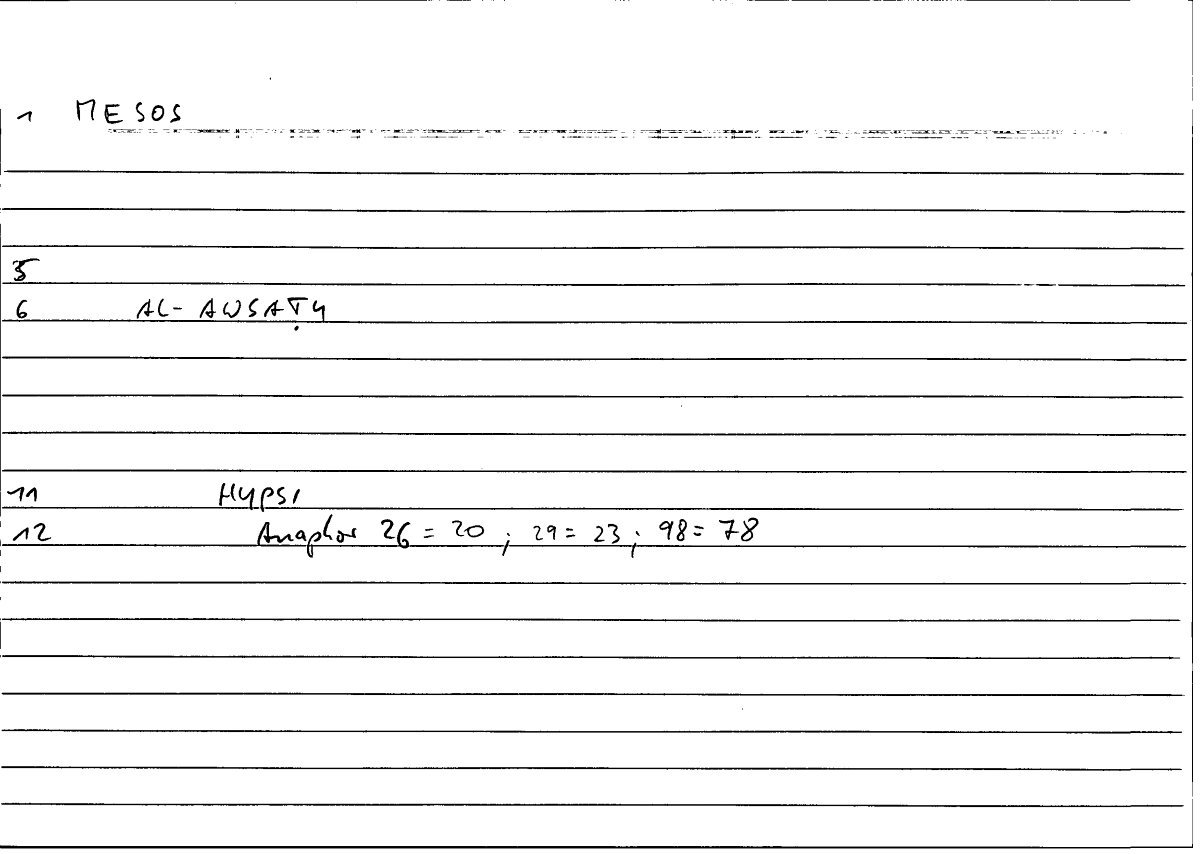 1 MESOS
5
6 AL-AWSAṬY
11 HYPSI
12 Anaphor 26 = 20 ; 29 = 23 ; 98 = 78